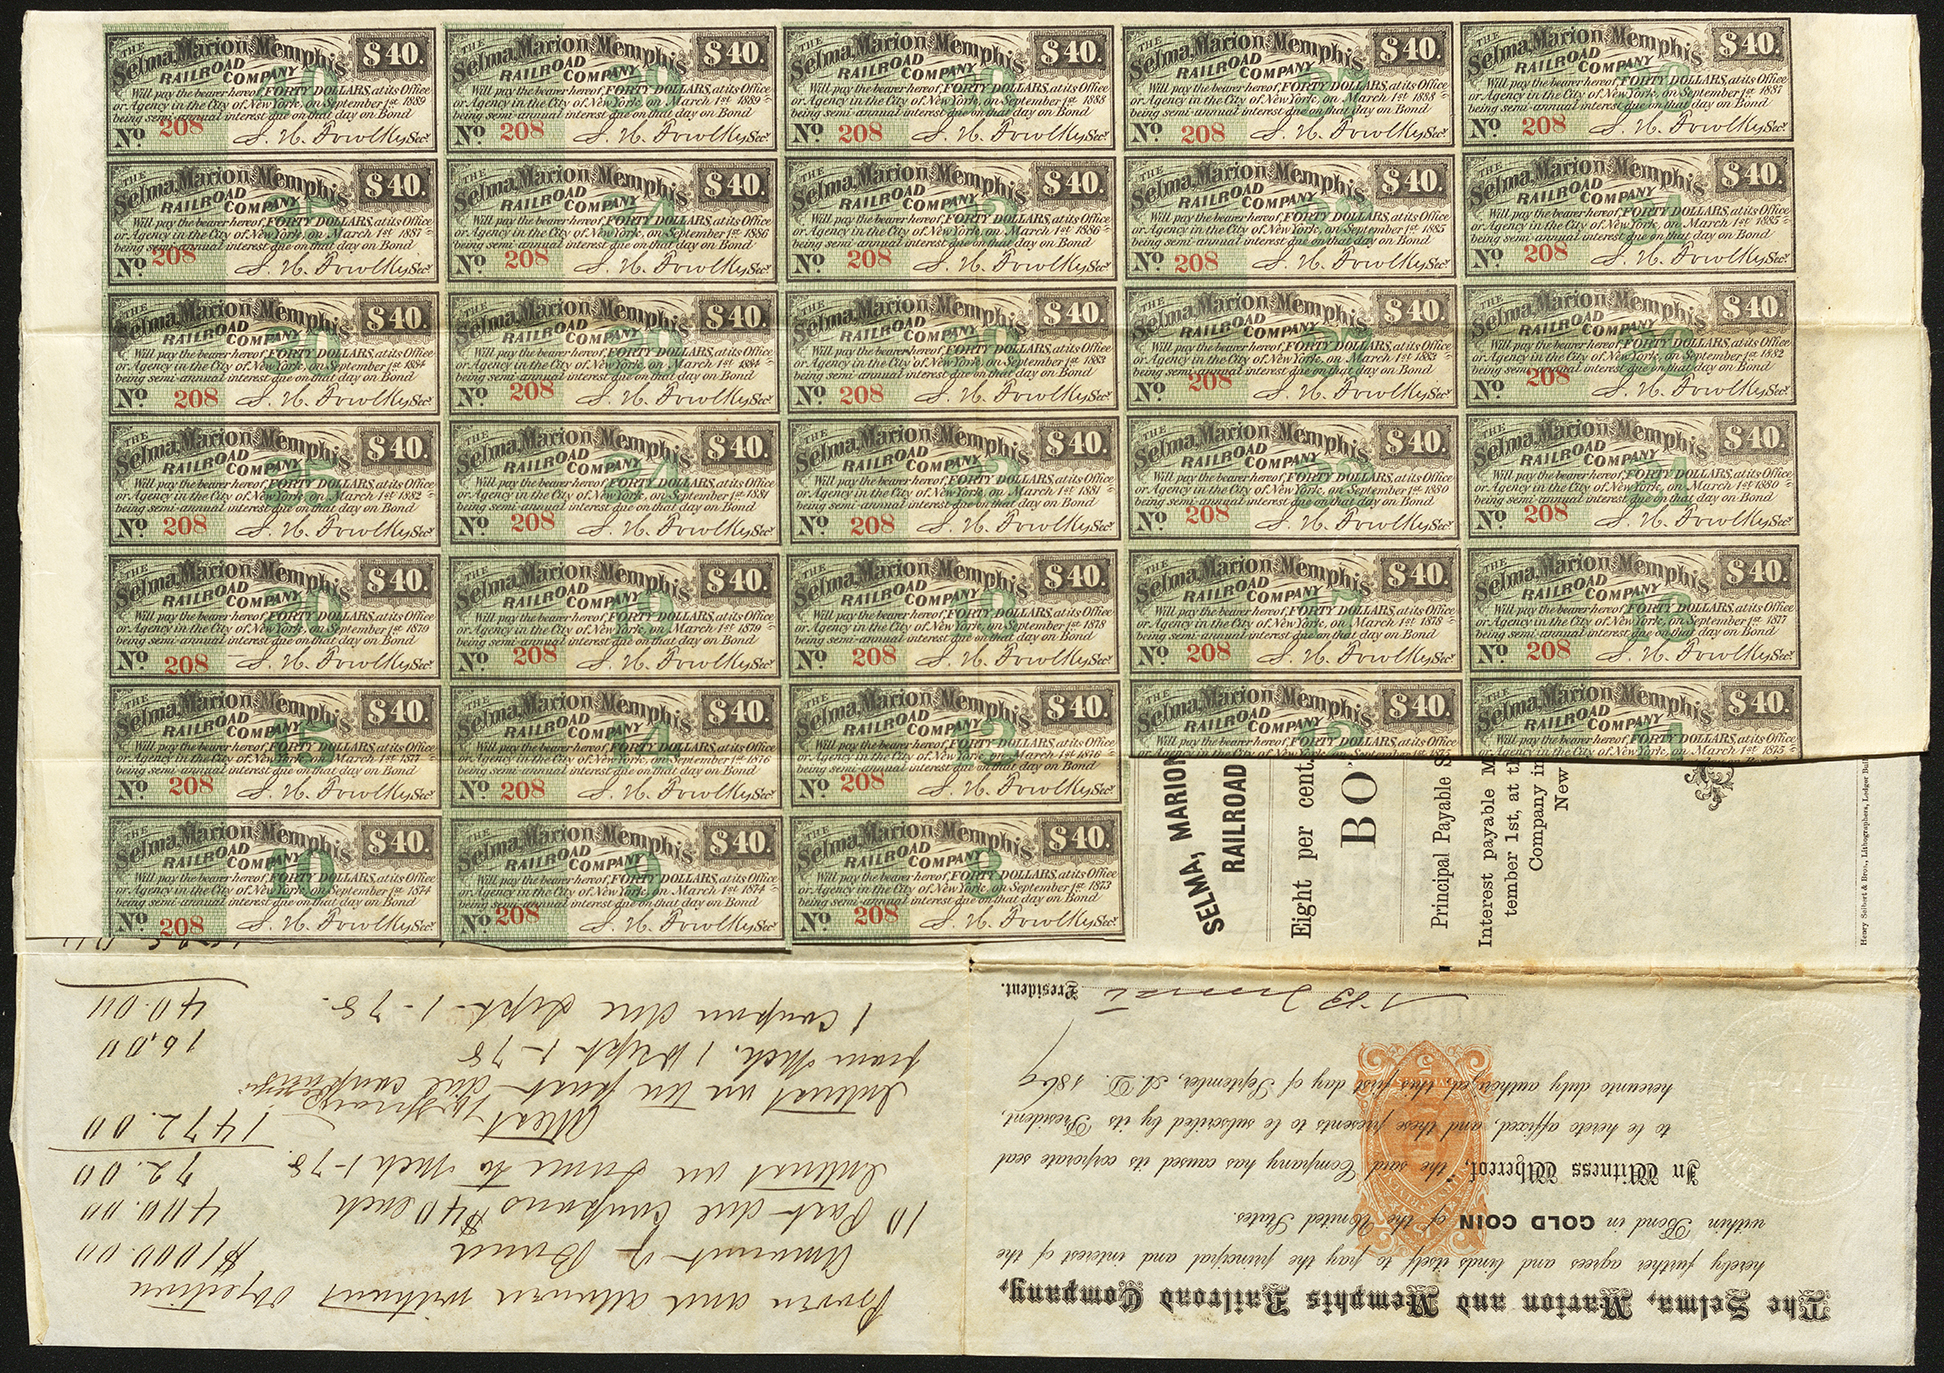 THE Selma, Marion and Memphis $40.
RAILROAD COMPANY
Will pay the bearer hereof, FORTY DOLLARS, at its Office
or Agency in the City of New York, on September 1st 1889
being semi-annual interest due on that day on Bond
No 208 Secy.
THE Selma, Marion and Memphis $40.
RAILROAD COMPANY
Will pay the bearer hereof, FORTY DOLLARS, at its Office
or Agency in the City of New York, on March 1st 1889
being semi-annual interest due on that day on Bond
No 208 Secy.
THE Selma, Marion and Memphis $40.
RAILROAD COMPANY
Will pay the bearer hereof, FORTY DOLLARS, at its Office
or Agency in the City of New York, on September 1st 1888
being semi-annual interest due on that day on Bond
No 208 Secy.
THE Selma, Marion and Memphis $40.
RAILROAD COMPANY
Will pay the bearer hereof, FORTY DOLLARS, at its Office
or Agency in the City of New York, on March 1st 1888
being semi-annual interest due on that day on Bond
No 208 Secy.
THE Selma, Marion and Memphis $40.
RAILROAD COMPANY
Will pay the bearer hereof, FORTY DOLLARS, at its Office
or Agency in the City of New York, on September 1st 1887
being semi-annual interest due on that day on Bond
No 208 Secy.
THE Selma, Marion and Memphis $40.
RAILROAD COMPANY
Will pay the bearer hereof, FORTY DOLLARS, at its Office
or Agency in the City of New York, on March 1st 1887
being semi-annual interest due on that day on Bond
No 208 Secy.
THE Selma, Marion and Memphis $40.
RAILROAD COMPANY
Will pay the bearer hereof, FORTY DOLLARS, at its Office
or Agency in the City of New York, on September 1st 1886
being semi-annual interest due on that day on Bond
No 208 Secy.
THE Selma, Marion and Memphis $40.
RAILROAD COMPANY
Will pay the bearer hereof, FORTY DOLLARS, at its Office
or Agency in the City of New York, on March 1st 1886
being semi-annual interest due on that day on Bond
No 208 Secy.
THE Selma, Marion and Memphis $40.
RAILROAD COMPANY
Will pay the bearer hereof, FORTY DOLLARS, at its Office
or Agency in the City of New York, on September 1st 1885
being semi-annual interest due on that day on Bond
No 208 Secy.
THE Selma, Marion and Memphis $40.
RAILROAD COMPANY
Will pay the bearer hereof, FORTY DOLLARS, at its Office
or Agency in the City of New York, on March 1st 1885
being semi-annual interest due on that day on Bond
No 208 Secy.
THE Selma, Marion and Memphis $40.
RAILROAD COMPANY
Will pay the bearer hereof, FORTY DOLLARS, at its Office
or Agency in the City of New York, on September 1st 1884
being semi-annual interest due on that day on Bond
No 208 Secy.
THE Selma, Marion and Memphis $40.
RAILROAD COMPANY
Will pay the bearer hereof, FORTY DOLLARS, at its Office
or Agency in the City of New York, on March 1st 1884
being semi-annual interest due on that day on Bond
No 208 Secy.
THE Selma, Marion and Memphis $40.
RAILROAD COMPANY
Will pay the bearer hereof, FORTY DOLLARS, at its Office
or Agency in the City of New York, on September 1st 1883
being semi-annual interest due on that day on Bond
No 208 Secy.
THE Selma, Marion and Memphis $40.
RAILROAD COMPANY
Will pay the bearer hereof, FORTY DOLLARS, at its Office
or Agency in the City of New York, on March 1st 1883
being semi-annual interest due on that day on Bond
No 208 Secy.
THE Selma, Marion and Memphis $40.
RAILROAD COMPANY
Will pay the bearer hereof, FORTY DOLLARS, at its Office
or Agency in the City of New York, on September 1st 1882
being semi-annual interest due on that day on Bond
No 208 Secy.
THE Selma, Marion and Memphis $40.
RAILROAD COMPANY
Will pay the bearer hereof, FORTY DOLLARS, at its Office
or Agency in the City of New York, on March 1st 1882
being semi-annual interest due on that day on Bond
No 208 Secy.
THE Selma, Marion and Memphis $40.
RAILROAD COMPANY
Will pay the bearer hereof, FORTY DOLLARS, at its Office
or Agency in the City of New York, on September 1st 1881
being semi-annual interest due on that day on Bond
No 208 Secy.
THE Selma, Marion and Memphis $40.
RAILROAD COMPANY
Will pay the bearer hereof, FORTY DOLLARS, at its Office
or Agency in the City of New York, on March 1st 1881
being semi-annual interest due on that day on Bond
No 208 Secy.
THE Selma, Marion and Memphis $40.
RAILROAD COMPANY
Will pay the bearer hereof, FORTY DOLLARS, at its Office
or Agency in the City of New York, on September 1st 1880
being semi-annual interest due on that day on Bond
No 208 Secy.
THE Selma, Marion and Memphis $40.
RAILROAD COMPANY
Will pay the bearer hereof, FORTY DOLLARS, at its Office
or Agency in the City of New York, on March 1st 1880
being semi-annual interest due on that day on Bond
No 208 Secy.
THE Selma, Marion and Memphis $40.
RAILROAD COMPANY
Will pay the bearer hereof, FORTY DOLLARS, at its Office
or Agency in the City of New York, on September 1st 1879
being semi-annual interest due on that day on Bond
No 208 Secy.
THE Selma, Marion and Memphis $40.
RAILROAD COMPANY
Will pay the bearer hereof, FORTY DOLLARS, at its Office
or Agency in the City of New York, on March 1st 1879
being semi-annual interest due on that day on Bond
No 208 Secy.
THE Selma, Marion and Memphis $40.
RAILROAD COMPANY
Will pay the bearer hereof, FORTY DOLLARS, at its Office
or Agency in the City of New York, on September 1st 1878
being semi-annual interest due on that day on Bond
No 208 Secy.
THE Selma, Marion and Memphis $40.
RAILROAD COMPANY
Will pay the bearer hereof, FORTY DOLLARS, at its Office
or Agency in the City of New York, on March 1st 1878
being semi-annual interest due on that day on Bond
No 208 Secy.
THE Selma, Marion and Memphis $40.
RAILROAD COMPANY
Will pay the bearer hereof, FORTY DOLLARS, at its Office
or Agency in the City of New York, on September 1st 1877
being semi-annual interest due on that day on Bond
No 208 Secy.
THE Selma, Marion and Memphis $40.
RAILROAD COMPANY
Will pay the bearer hereof, FORTY DOLLARS, at its Office
or Agency in the City of New York, on March 1st 1877
being semi-annual interest due on that day on Bond
No 208 Secy.
THE Selma, Marion and Memphis $40.
RAILROAD COMPANY
Will pay the bearer hereof, FORTY DOLLARS, at its Office
or Agency in the City of New York, on September 1st 1876
being semi-annual interest due on that day on Bond
No 208 Secy.
THE Selma, Marion and Memphis $40.
RAILROAD COMPANY
Will pay the bearer hereof, FORTY DOLLARS, at its Office
or Agency in the City of New York, on March 1st 1876
being semi-annual interest due on that day on Bond
No 208 Secy.
THE Selma, Marion and Memphis $40.
RAILROAD COMPANY
Will pay the bearer hereof, FORTY DOLLARS, at its Office
or Agency in the City of New York, on September 1st 1875
THE Selma, Marion and Memphis $40.
RAILROAD COMPANY
Will pay the bearer hereof, FORTY DOLLARS, at its Office
or Agency in the City of New York, on March 1st 1875
THE Selma, Marion and Memphis $40.
RAILROAD COMPANY
Will pay the bearer hereof, FORTY DOLLARS, at its Office
or Agency in the City of New York, on September 1st 1874
being semi-annual interest due on that day on Bond
No 208 Secy.
THE Selma, Marion and Memphis $40.
RAILROAD COMPANY
Will pay the bearer hereof, FORTY DOLLARS, at its Office
or Agency in the City of New York, on March 1st 1874
being semi-annual interest due on that day on Bond
No 208 Secy.
THE Selma, Marion and Memphis $40.
RAILROAD COMPANY
Will pay the bearer hereof, FORTY DOLLARS, at its Office
or Agency in the City of New York, on September 1st 1873
being semi-annual interest due on that day on Bond
No 208 Secy.
SELMA, MARION
RAILROAD
Eight per cent.
BO
Principal Payable S
Interest payable M
tember 1st, at th
Company in
New
Henry Seibert & Bro., Lithographers, Ledger Bui
The Selma, Marion and Memphis Railroad Company,
hereby further agrees and binds itself to pay the principal and interest of the
within Bond in GOLD COIN of the United States.
In Witness Whereof, the said Company has caused its corporate seal
to be hereto affixed, and these presents to be subscribed by its President,
hereunto duly authorized, this first day of September, A. D. 1869
President.
Proven and allowed without objection
Amount of Bond $1000.00
10 Past due Coupons $40 each 400.00
Interest on Same to Mch 1-78. 72.00
1472.00
Interest on ten past due coupons
from Mch. 1 to Sept 1-78 16.00
1 Coupon due Sept. 1-78. 40.00